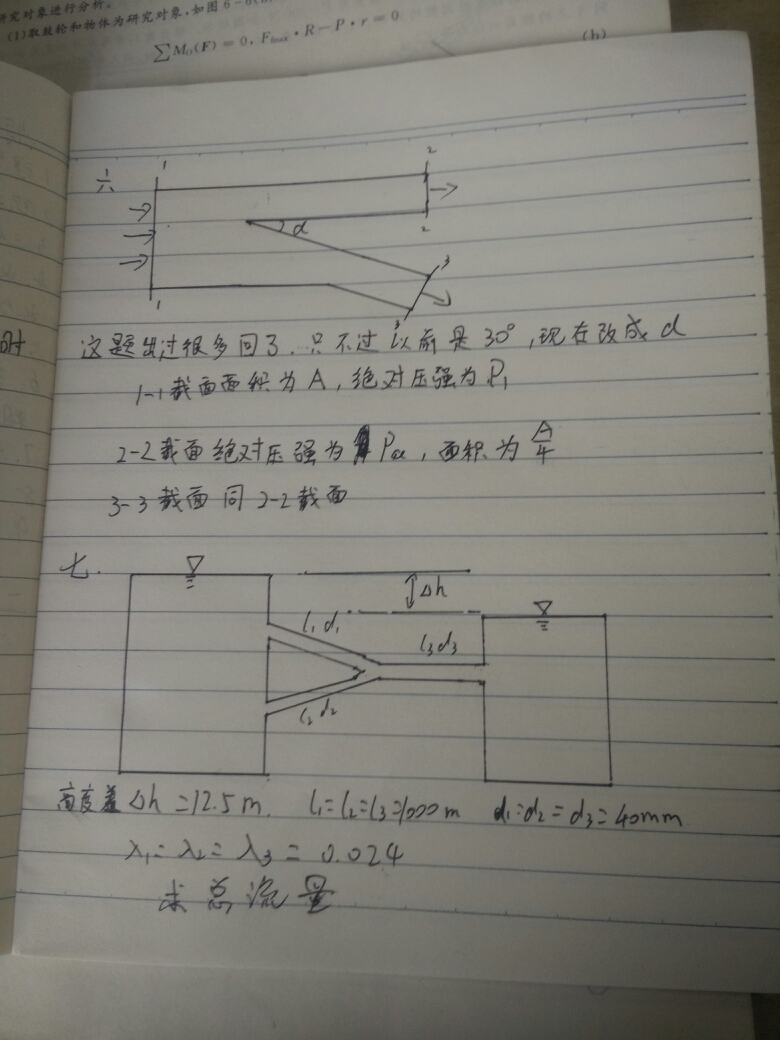 究对象进行分析。
(1)取鼓轮和物体为研究对象,如图6-
∑M₀(F) = 0, F · R - P · r = 0
(b)
六
1
2
α
2
3
1
3
这题出过很多回了.只不过以前是30°,现在改成α
1-1截面面积为A,绝对压强为P₁
2-2截面绝对压强为Pa,面积为A/4
3-3截面同2-2截面
七.
Δh
l₁d₁
l₃d₃
l₂d₂
高度差Δh=12.5m. l₁=l₂=l₃=1000m d₁=d₂=d₃=40mm
λ₁=λ₂=λ₃=0.024
求总流量